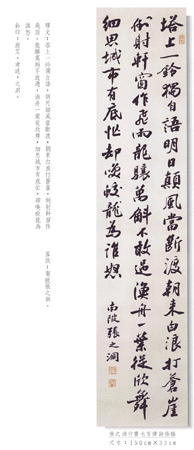 塔上一鈴獨自語明日顛風當斷渡朝來白浪打蒼崖
倒射軒窗作飛雨龍驤萬斛不敢過漁舟一葉從掀舞
細思城市有底忙却笑蛟龍為誰怒
南陂張之洞
釋文：塔上一鈴獨自語，明日顛風當斷渡。朝來白浪打蒼崖，倒射軒窗作
飛雨。龍驤萬斛不敢過，漁舟一葉從掀舞。細思城市有底忙，却笑蛟龍為
誰怒。
張之洞行書七言律詩條幅
尺寸：150cm×33cm